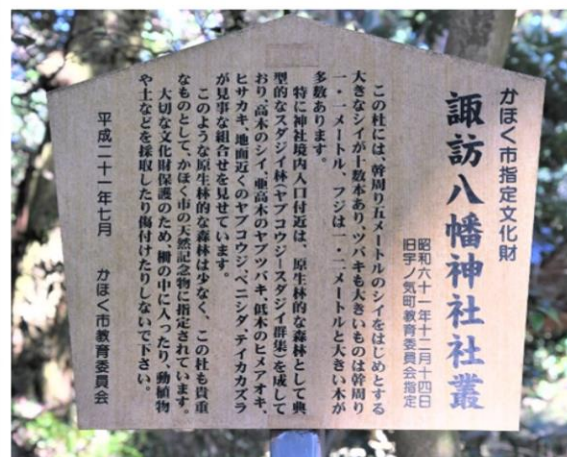 かほく市指定文化財
諏訪八幡神社社叢
昭和六十一年十二月十四日
旧宇ノ気町教育委員会指定
この杜には、幹周り五メートルのシイをはじめとする
大きなシイが十数本あり、ツバキも大きいものは幹周り
一・一メートル、フジは一・二メートルと大きい木が
多数あります。
特に神社境内入口付近は、原生林的な森林として典
型的なスダジイ林(ヤブコウジースダジイ群集)を成して
おり、高木のシイ、亜高木のヤブツバキ、低木のヒメアオキ、
ヒサカキ、地面近くのヤブコウジ、ベニシダ、テイカカズラ
が見事な組合せを見せています。
このような原生林的な森林は少なく、この杜も貴重
なものとして、かほく市の天然記念物に指定されています。
大切な文化財保護のため、柵の中に入ったり、動植物
や土などを採取したり傷付けたりしないで下さい。
平成二十一年七月 かほく市教育委員会